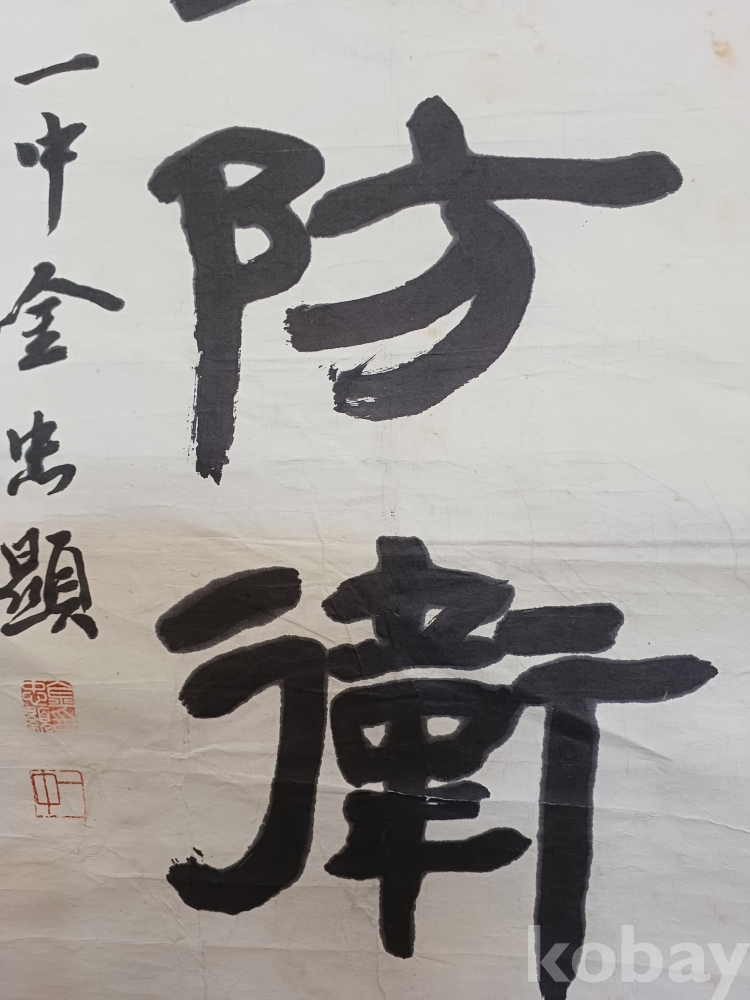 防衛
一中金忠顯
一中
kobay